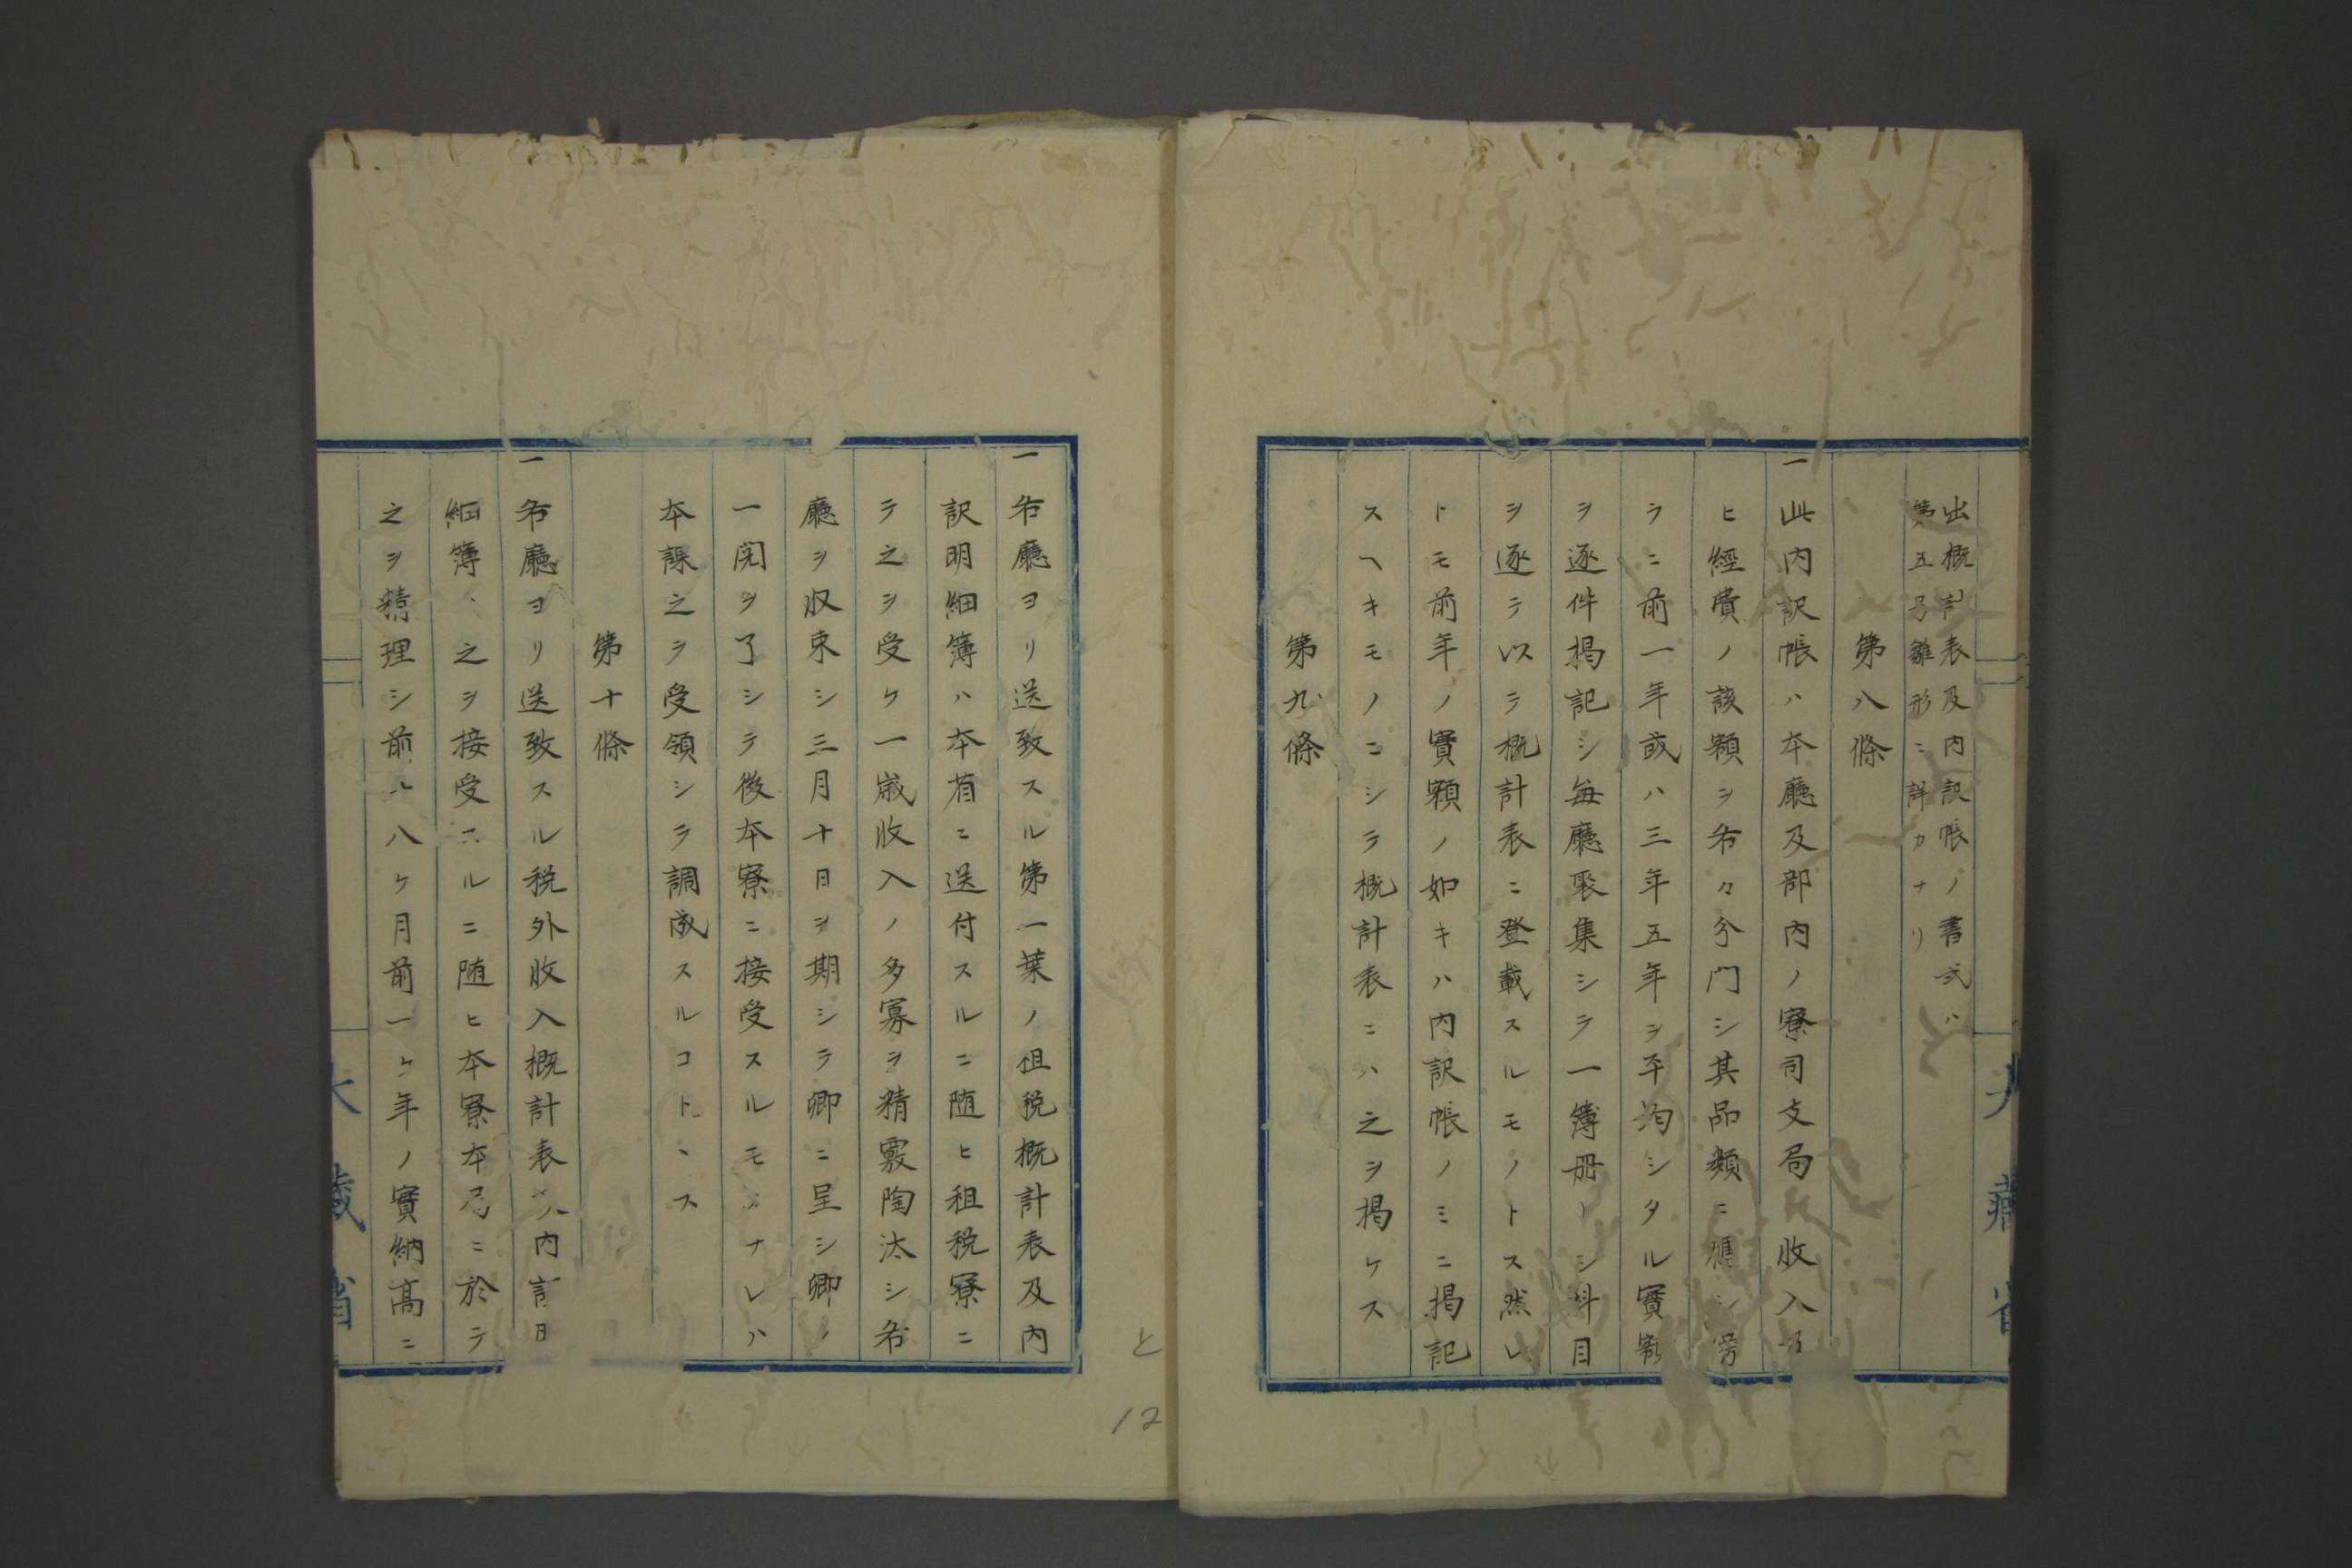 出概計表及内訳帳ノ書式ハ
第五号雛形ニ詳カナリ
第八條
一此内訳帳ハ本廳及部内ノ寮司支局收入
ヒ經費ノ該額ヲ各々分門シ其品類ニ シ旁
ラニ前一年或ハ三年五年ヲ平均シタル實額
ヲ逐件掲記シ毎廳聚集シテ一簿册トシ科目
ヲ逐テ以テ概計表ニ登載スルモノトス然レ
トモ前年ノ實額ノ如キハ内訳帳ノミニ掲記
スヘキモノニシテ概計表ニハ之ヲ掲ケス
第九條
大藏省
一各廳ヨリ送致スル第一葉ノ租税概計表及内
訳明細簿ハ本省ニ送付スルニ随ヒ租税寮ニ
テ之ヲ受ケ一歳收入ノ多寡ヲ精覈陶汰シ各
廳ヲ収束シ三月十日ヲ期シテ卿ニ呈シ卿ノ
一閲ヲ了シテ後本寮ニ接受スルモノナレハ
本課之ヲ受領シテ調成スルコトヽス
第十條
一各廳ヨリ送致スル税外收入概計表 内 
細簿ハ之ヲ接受スルニ随ヒ本寮本局ニ於テ
之ヲ精理シ前ル八ケ月前一ケ年ノ實納高ニ
大藏省
と
12